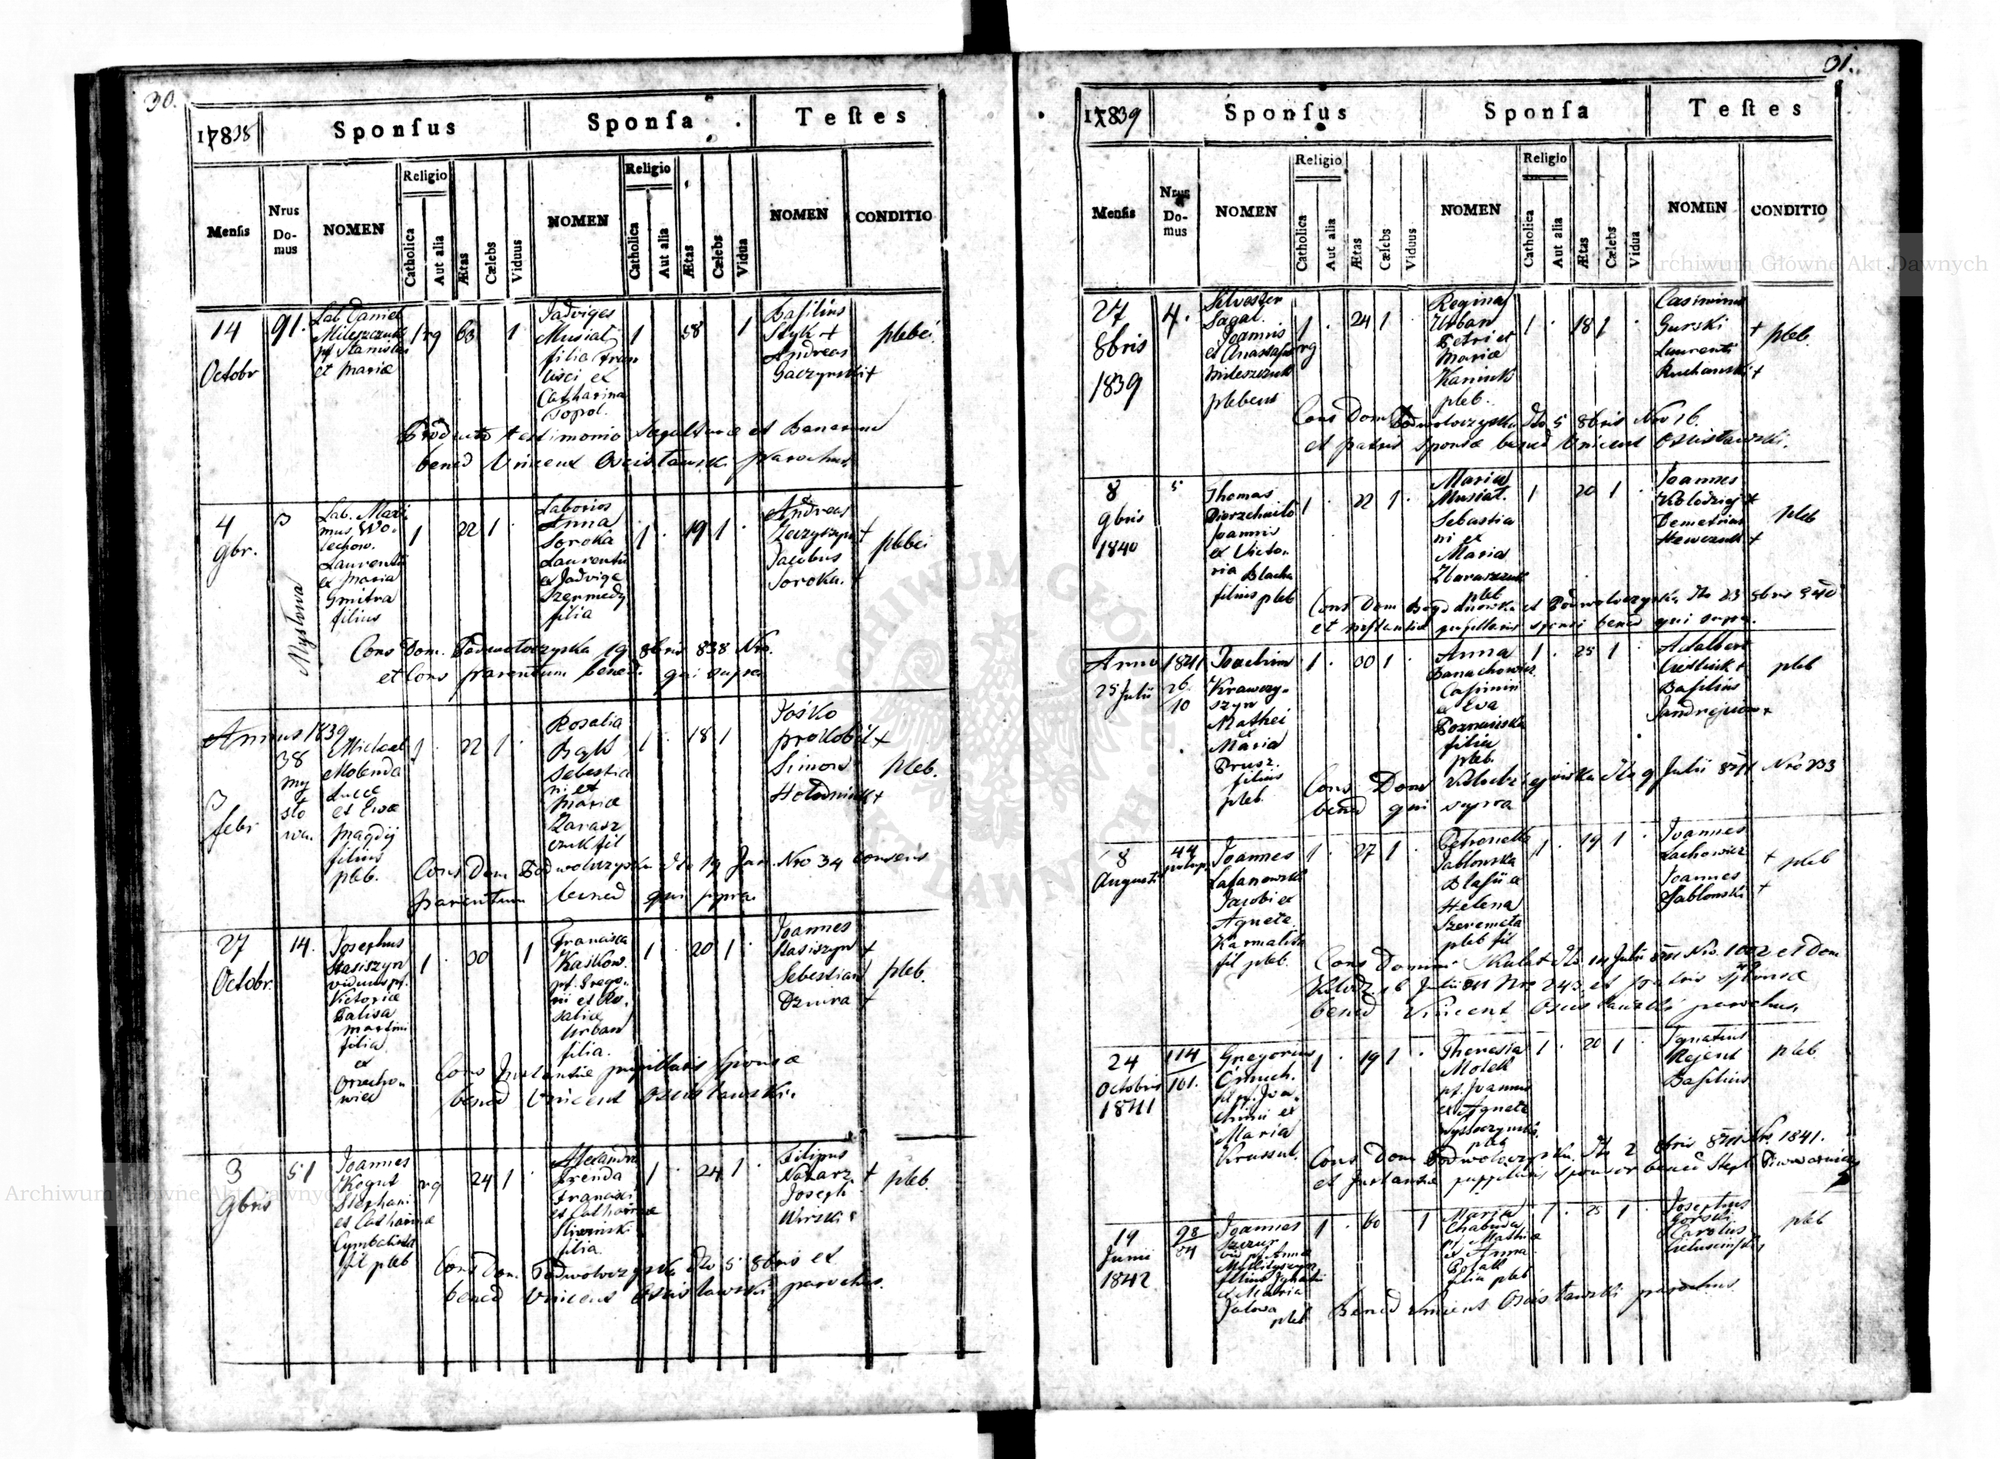 30.
17838
Sponſus
Sponſa
Teſtes
Menſis
Nrus Do-mus
NOMEN
Religio
Catholica
Aut alia
Ætas
Cælebs
Viduus
NOMEN
Religio
Catholica
Aut alia
Ætas
Cælebs
Vidua
NOMEN
CONDITIO
14
Octobr
91.
Lab Daniel
Mileszczuk
pf Stanislai
et Mariæ
1
rg
63
1
Jadviges
Musiat
filia Fran
cisci et
Catharina
Topol.
1
58
1
Basilius
Styk +
Andreas
Gaczynski +
plebei
Producto testimonio Sepulturæ et Banorum
bened Vincent Oscislawski parochus
4
9br.
3
Myslowa
Lab. Maxi
mus Wo-
lechow.
Laurentii
et Maria
Gmitra
filius
1
22
1
Laborios
Anna
Soroka
Laurentii
et Jadviga
Szeremedy
filia
1
19
1
Andreas
Jacobus
Soroka. +
plebei
Cons Dom. Podwoloczyska 19 8bris 838 Nro.
et Cons parentum bened. qui supra
Annus 1839
3
febr
38
my
slo
wa.
Michael
Molenda
Lucæ
et Evæ
Magdij
filius
pleb.
1
22
1
Rosalia
Bąk
Sebastia
ni et
Maria
Zarasz
czuk fil
1
18
1
Jośko
Prokobit +
Simon
Holodniuk +
pleb.
Cons Dom Podwoloczyska dto 19 Jan. Nro 34 consens
parentum bened qui supra
27
Octobr.
14.
Josephus
Stasiszyn
viduus pf.
Victoriæ
Balisa
Martini
filia
et
Orzecho-
wiec
1
30
1
Francisca
Kaśkow.
pf. Grego-
rii et Ro-
salia
Urban
filia.
1
20
1
Joannes
Stasiszyn +
Sebestian
Dziura +
pleb.
Cons Instantiæ pupillaris sponsæ
bened Vincent Oscislawski.
3
9bris
51
Joannes
Kogut
Stephani
et Catharinæ
Cymbalista
fil pleb
rg
24
1
Alexandra
Frenda
Francisci
et Catharinæ
Sliwinski
filia
1
24
1
Filipus
Nazarz +
Joseph
Wirski
pleb.
Cons Dom. Podwoloczyska dto 5 8bris et
bened Vincent Oscislawski parochus.
31.
17839
Sponſus
Sponſa
Teſtes
Menſis
Nrus Do-mus
NOMEN
Religio
Catholica
Aut alia
Ætas
Cælebs
Viduus
NOMEN
Religio
Catholica
Aut alia
Ætas
Cælebs
Vidua
NOMEN
CONDITIO
27
8bris
1839
4.
Silvester
Sagal.
Joannis
et Anastasiæ
Mileszczuk
plebeus
1
rg
24
1
Regina
Urban
Petri et
Maria
Kaniuk
pleb.
1
18
1
Casimirus
Gurski +
Laurenti
Ruchanski +
pleb.
Cons Dom Podwoloczyska dto 5 8bris Nro 16.
et patris sponsæ bened Vincent Oscislawski.
8
9bris
1840
5
Thomas
Joannis
et Victo-
ria Blacha
filius pleb
1
22
1
Maria
Musiat.
Sebastia
ni et
Maria
Zbaraszczuk
pleb
1
20
1
Joannes
Kolodziej +
Demetrius
Szewczuk +
pleb
Cons Dom Bogdanowka et Podwoloczyska dto 23 8bris 840
et instantiæ pupillaris sponsi bened qui supra.
Anno 1841
25 Julii
26
10
Joachim
Krawczy-
szyn
Mathei
et
Maria
Prusz.
filius
pleb.
1
30
1
Anna
Banachowicz
Casimiri
et Eva
Poznanska
filia
pleb.
1
25
1
Adalbert
Basilius
Jandrejow +
pleb
Cons Dom dto 9 Julii 841 Nro 233
bened qui supra
8
Augusti
44
Joannes
Lasanowski
Jacobi et
Agneta
Karmalita
fil pleb.
1
27
1
Petronella
Jablonska
Blasii a
Helena
Szeremeta
pleb fil
1
19
1
Joannes
Lachowicz +
Joannes
Jablonski +
pleb
Cons Dominii Skalat dto 14 Julii 841 Nro. 1002 et Dom
16 Julii 841 Nro 243 et patris sponsæ
bened Vincent Oscislawski parochus.
24
Octobris
1841
114
161.
Gregorius
Maria
Krussul.
1
19
1
Theresia
Molek
pf. Joannis
et Agneta
Wyssoczynska
pleb
1
20
1
Ignatius
Rejent
Basilius
pleb
Cons Dom Podwoloczyska. dto 2 8bris 841 Nro. 1841.
et Instantiæ pupillaris sponsor bened Steph Piwowarski
19
Junii
1842
98
84
Joannes
Szczur
vid pf Anna
filius Ignatii
et Maria
Jalowa
pleb
1
60
1
Maria
Chabuda
pf Mathia
et Anna
filia pleb
1
25
1
Josephus
Gorski
Carolus
pleb
Bened Vincent Oscislawski parochus.
Archiwum Główne Akt Dawnych
Archiwum Główne Akt Dawnych
ARCHIWUM GŁÓWNE AKT DAWNYCH